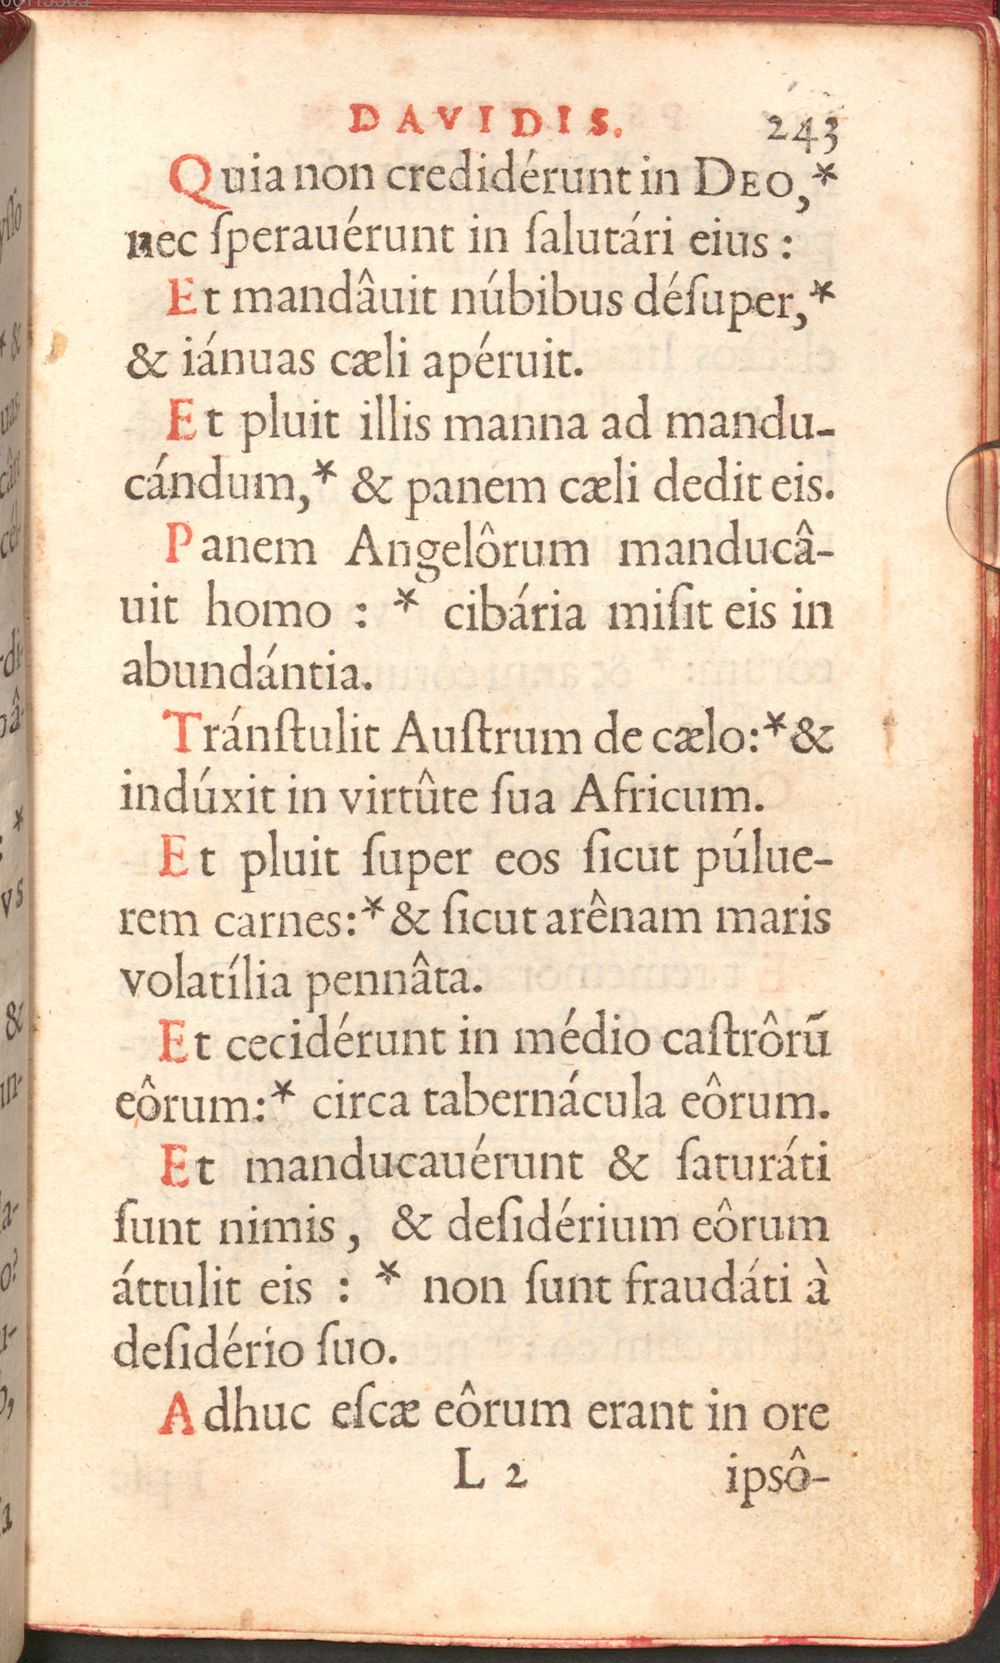 DAVIDIS. 243
Quia non credidérunt in DEO,*
nec ſperauérunt in ſalutári eius :
Et mandâuit núbibus déſuper,*
& iánuas cæli apéruit.
Et pluit illis manna ad mandu-
cándum,* & panem cæli dedit eis.
Panem Angelôrum manducâ-
uit homo : * cibária miſit eis in
abundántia.
Tránſtulit Auſtrum de cælo:*&
indúxit in virtûte ſua Africum.
Et pluit ſuper eos ſicut púlue-
rem carnes:*& ſicut arênam maris
volatília pennâta.
Et cecidérunt in médio caſtrôrū
eôrum:* circa tabernácula eôrum.
Et manducauérunt & ſaturáti
ſunt nimis, & deſidérium eôrum
áttulit eis : * non ſunt fraudáti à
deſidério ſuo.
Adhuc eſcæ eôrum erant in ore
L 2 ipsô-